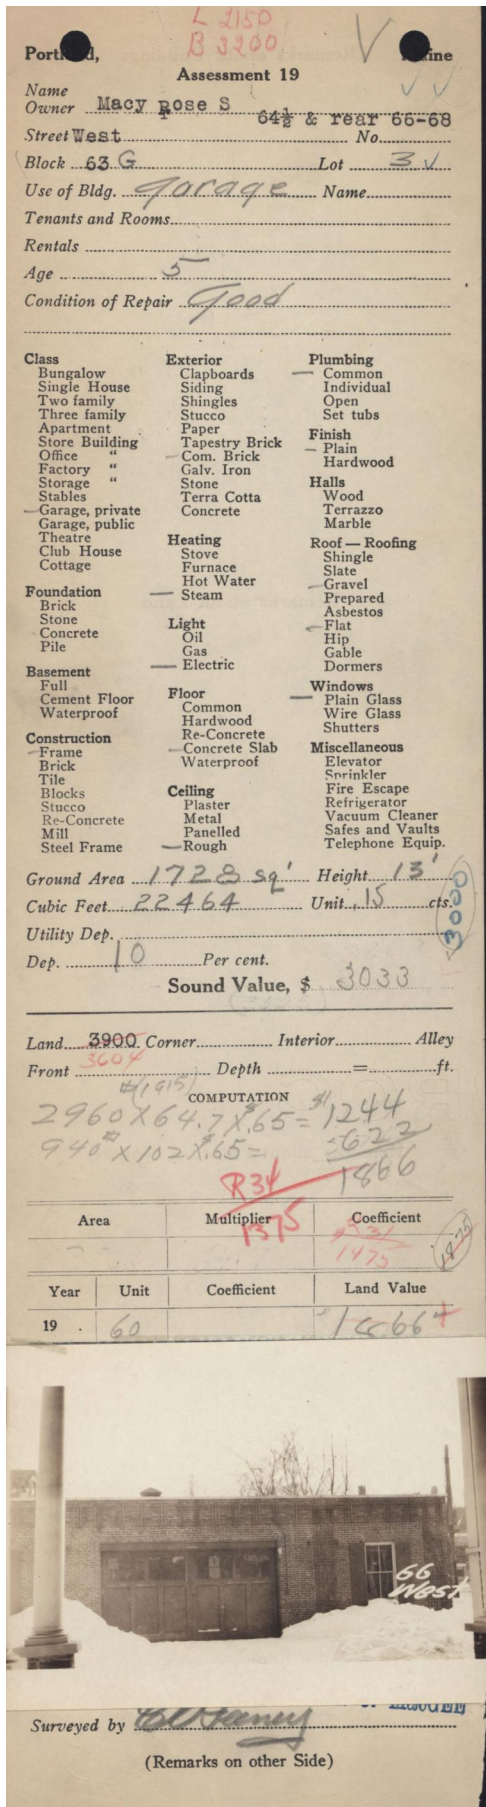 L 2150
B 3200
Portland, Maine
Assessment 19
Name
Owner Macy Rose S 64½ & rear 66-68
Street West No.
Block 63 G Lot 3
Use of Bldg. Garage Name
Tenants and Rooms
Rentals
Age 5
Condition of Repair Good
Class
Bungalow
Single House
Two family
Three family
Apartment
Store Building
Office "
Factory "
Storage "
Stables
Garage, private
Garage, public
Theatre
Club House
Cottage
Foundation
Brick
Stone
Concrete
Pile
Basement
Full
Cement Floor
Waterproof
Construction
Frame
Brick
Tile
Blocks
Stucco
Re-Concrete
Mill
Steel Frame
Exterior
Clapboards
Siding
Shingles
Stucco
Paper
Tapestry Brick
Com. Brick
Galv. Iron
Stone
Terra Cotta
Concrete
Heating
Stove
Furnace
Hot Water
Steam
Light
Oil
Gas
Electric
Floor
Common
Hardwood
Re-Concrete
Concrete Slab
Waterproof
Ceiling
Plaster
Metal
Panelled
Rough
Plumbing
Common
Individual
Open
Set tubs
Finish
Plain
Hardwood
Halls
Wood
Terrazzo
Marble
Roof — Roofing
Shingle
Slate
Gravel
Prepared
Asbestos
Flat
Hip
Gable
Dormers
Windows
Plain Glass
Wire Glass
Shutters
Miscellaneous
Elevator
Sprinkler
Fire Escape
Refrigerator
Vacuum Cleaner
Safes and Vaults
Telephone Equip.
Ground Area 1728 sq' Height 13'
Cubic Feet 22464 Unit .15 cts.
3000
Utility Dep.
Dep. 10 Per cent.
Sound Value, $ 3033
Land 3900 Corner Interior Alley
3604
Front Depth = ft.
#(1915)
COMPUTATION
2960 X 64.7 X .65 = $1244
940 X 102 X .65 = 622
1866
R34
1375
Area Multiplier Coefficient
R31
1475
1875
Year Unit Coefficient Land Value
19 . 60 1866
66
West
Surveyed by
(Remarks on other Side)